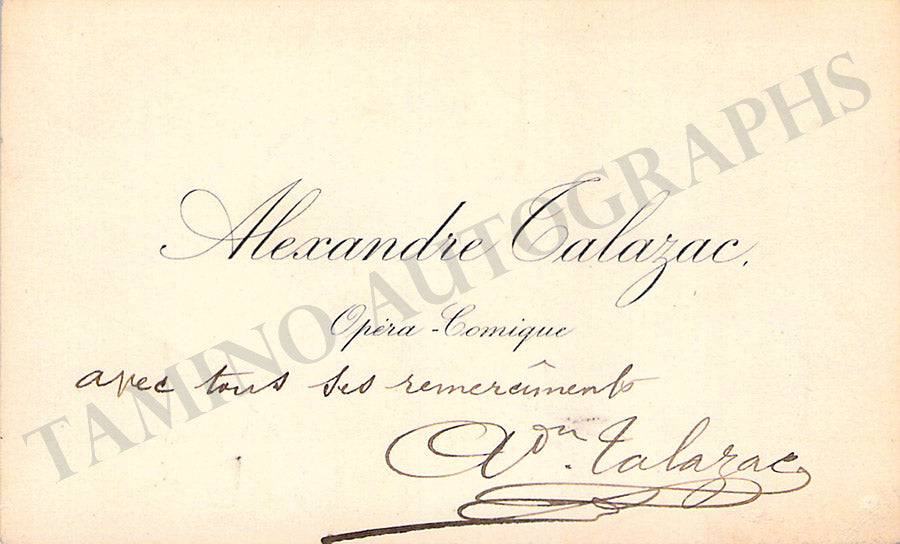 Alexandre Talazac.
Opéra-Comique
avec tous ses remercîments
Adn. Talazac
TAMINO AUTOGRAPHS